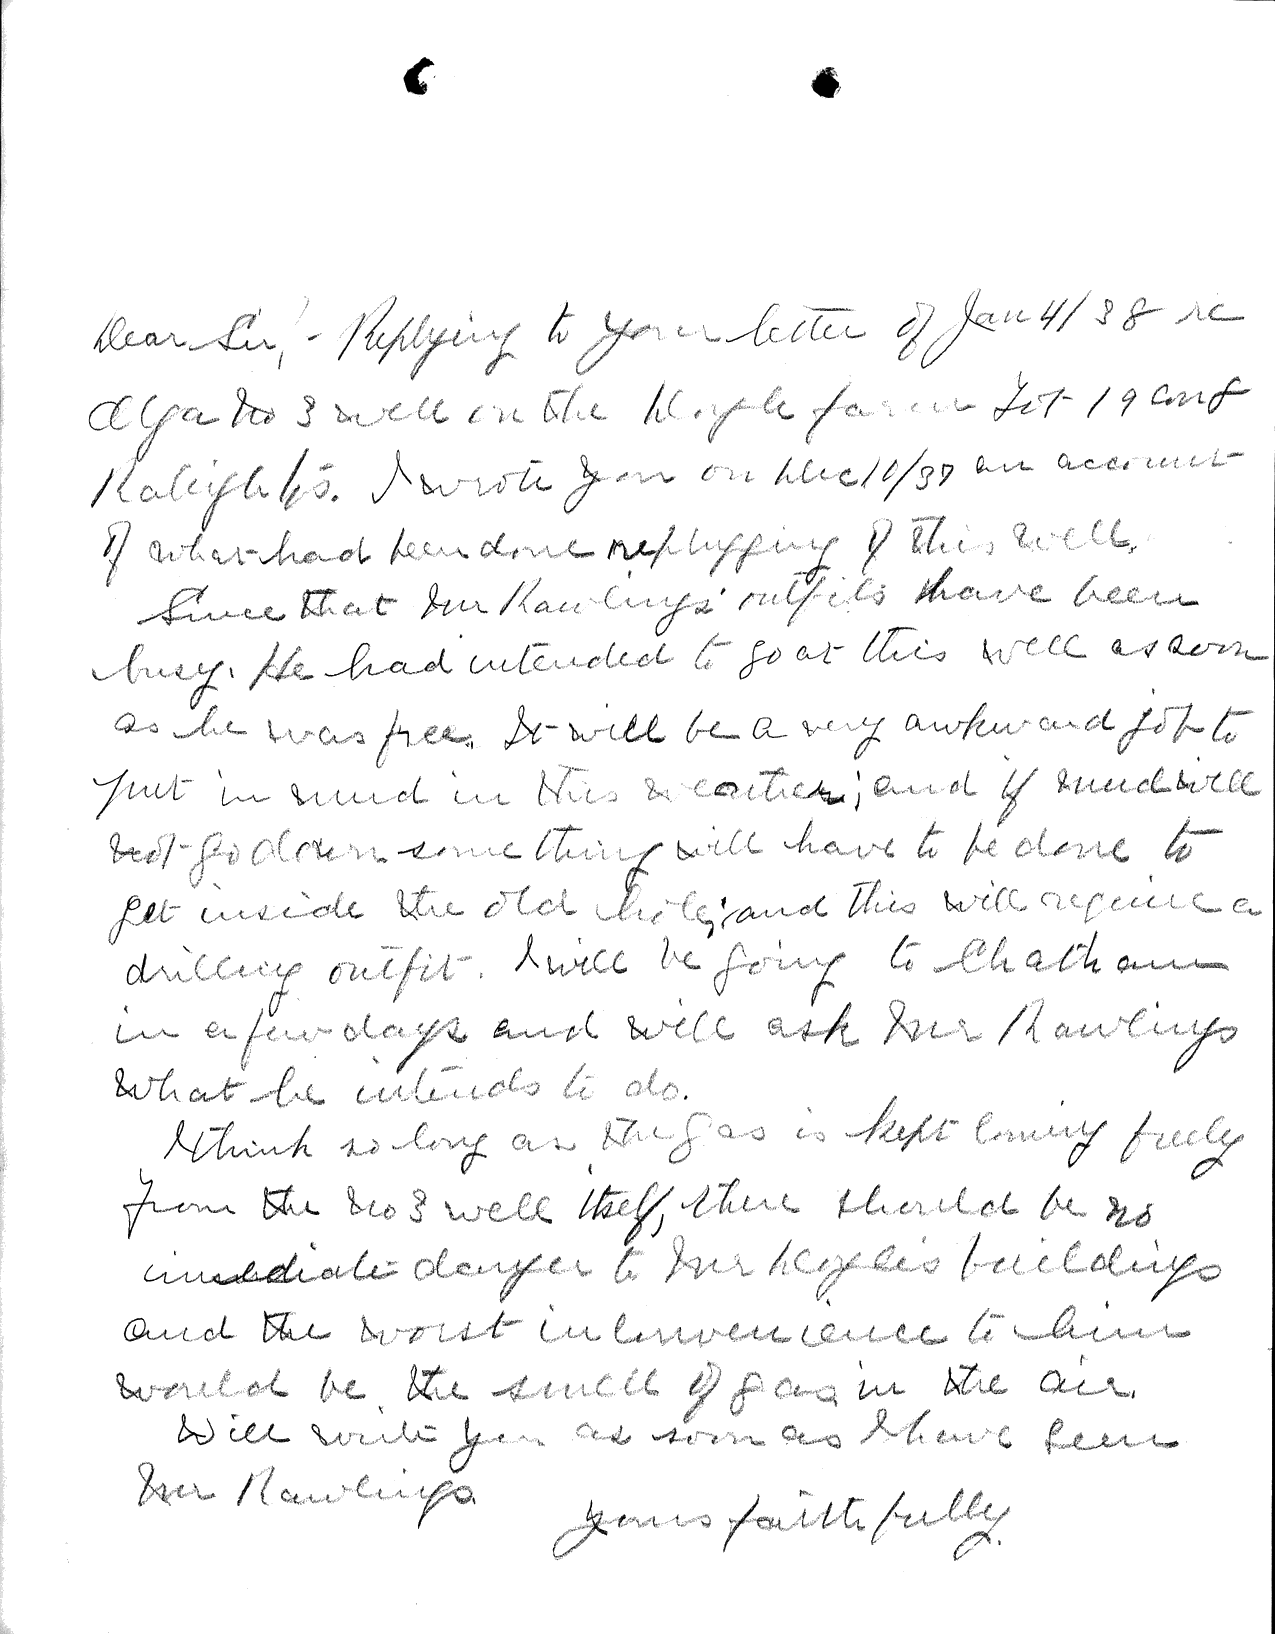 Dear Sir,- Replying to your letter of Jan 4/38 re
No 3 well on the farm Lot 19 Con 8
Raleigh I wrote you on Dec 10/37 an account
of what had been done replugging of this well.
Since that Mr Rawlings' outfits have been
busy. He had intended to go at this well as soon
as he was free. It will be a very awkward job to
put in mud in this weather; and if mud will
not go down something will have to be done to
get inside the old hole; and this will require a
drilling outfit. I will be going to Chatham
in a few days and will ask Mr Rawlings
what he intends to do.
I think so long as the gas is kept coming freely
from the No 3 well itself, there should be no
immediate danger to Mr buildings
and the worst inconvenience to him
would be the smell of gas in the air.
Will write you as soon as I have seen
Mr Rawlings.
yours faithfully.